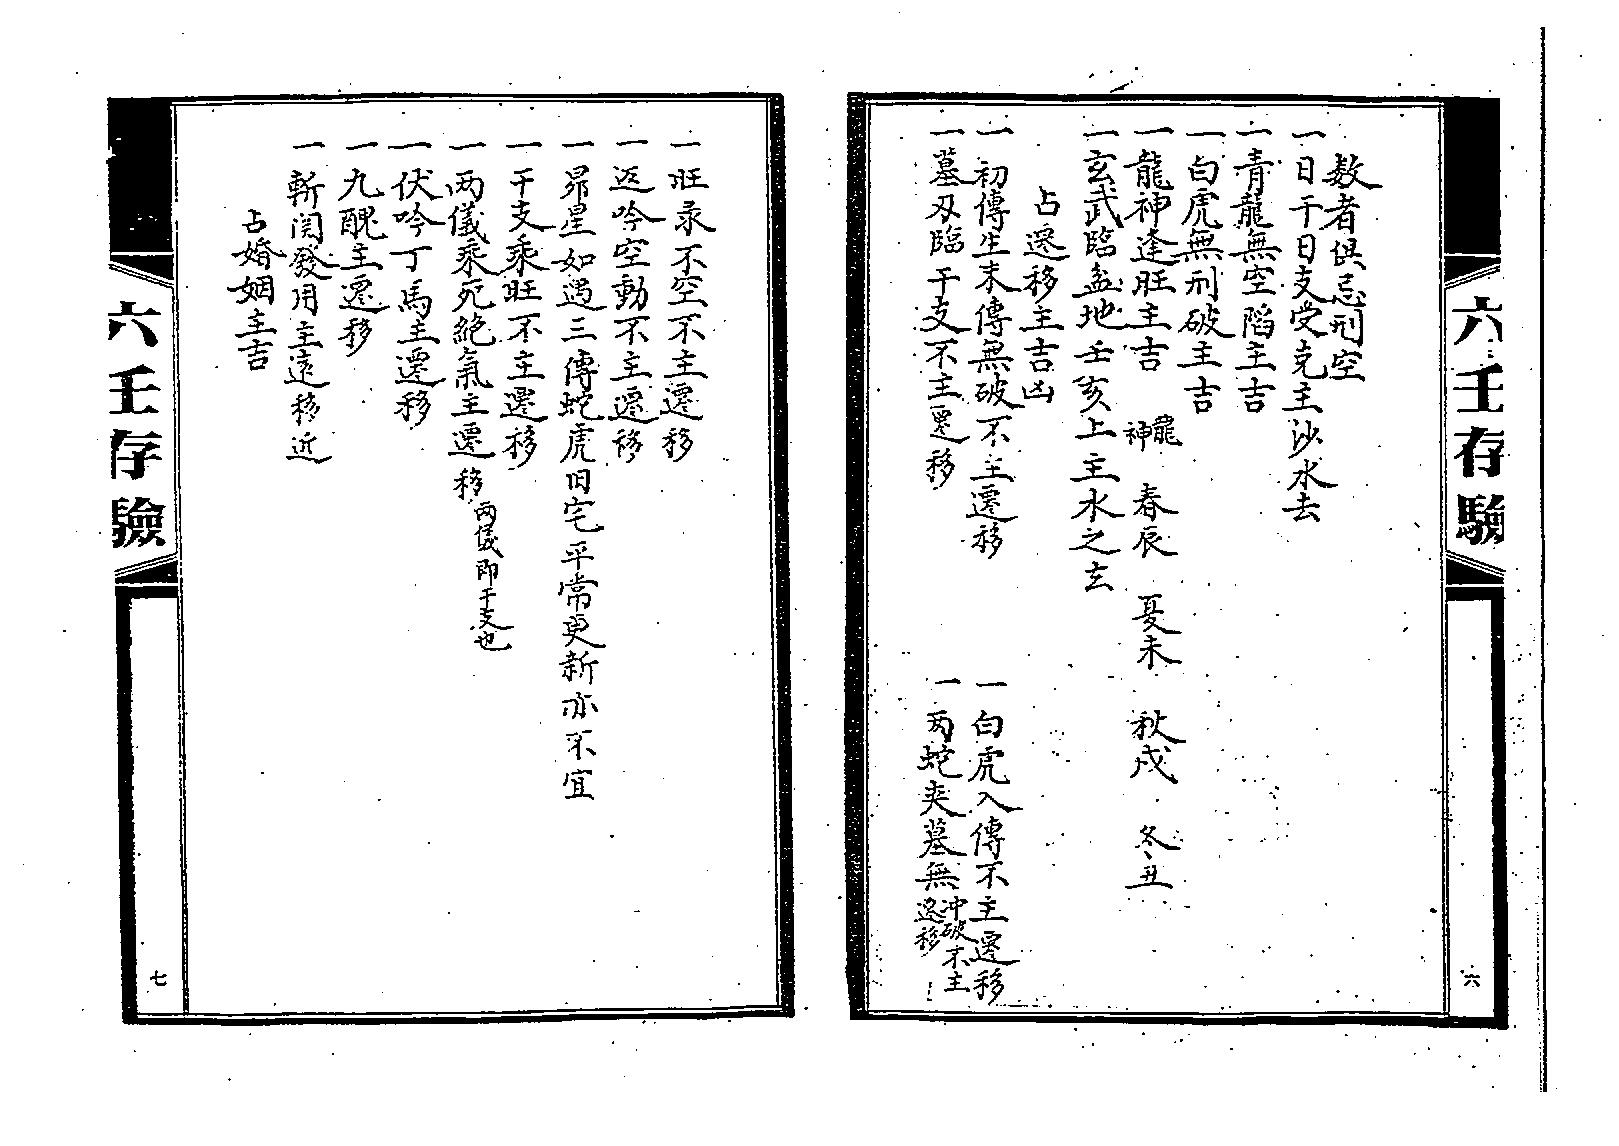 六壬存驗
六
数者俱忌刑空
一日干日支受克主沙水去
一青龍無空陷主吉
一白虎無刑破主吉
一龍神逢旺主吉 龍神 春辰 夏未 秋戌 冬丑
一玄武臨孟地壬亥上主水之玄
占遷移主吉凶
一初傳生末傳無破不主遷移
一白虎入傳不主遷移
一墓刃臨干支不主遷移
一两蛇夹墓無冲破不主遷移
一旺彔不空不主遷移
一返吟空動不主遷移
一昴星如遇三傳蛇虎旧宅平常更新亦不宜
一干支乘旺不主遷移
一两儀乘死絕氣主遷移 两儀即干支也
一伏吟丁馬主遷移
一九醜主遷移
一斬関發用主遠移近
占婚姻主吉
六壬存驗
七